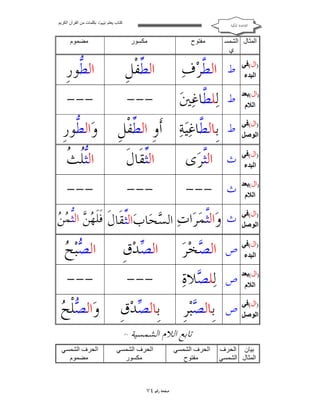 كتاب يعلم بيوت بكلمات من القرآن الكريم
المثال الشمسي مفتوح مكسور مضموم
(ال)في البدء ط الطَّرْفِ الطِّفْلِ الطُّورِ
(ال)بعد اللام ط لِلطَّاغِينَ --- ---
(ال)في الوصل ط بِالطَّاغِيَةِ أَوِ الطِّفْلِ وَالطُّورِ
(ال)في البدء ث الثَّرَى الثِّقَالَ الثُّلُثُ
(ال)بعد اللام ث --- --- ---
(ال)في الوصل ث وَالثَّمَرَاتِ السَّحَابَ الثِّقَالَ فَلَهُنَّ الثُّمُنُ
(ال)في البدء ص الصَّخْرَ الصِّدْقِ الصُّبْحُ
(ال)بعد اللام ص لِلصَّلاةِ --- ---
(ال)في الوصل ص بِالصَّبْرِ بِالصِّدْقِ وَالصُّلْحُ
تابع اللام الشمسية ~
بيان المثال الحرف الشمسي الحرف الشمسي مفتوح الحرف الشمسي مكسور الحرف الشمسي مضموم
صفحه رقم ٧٤